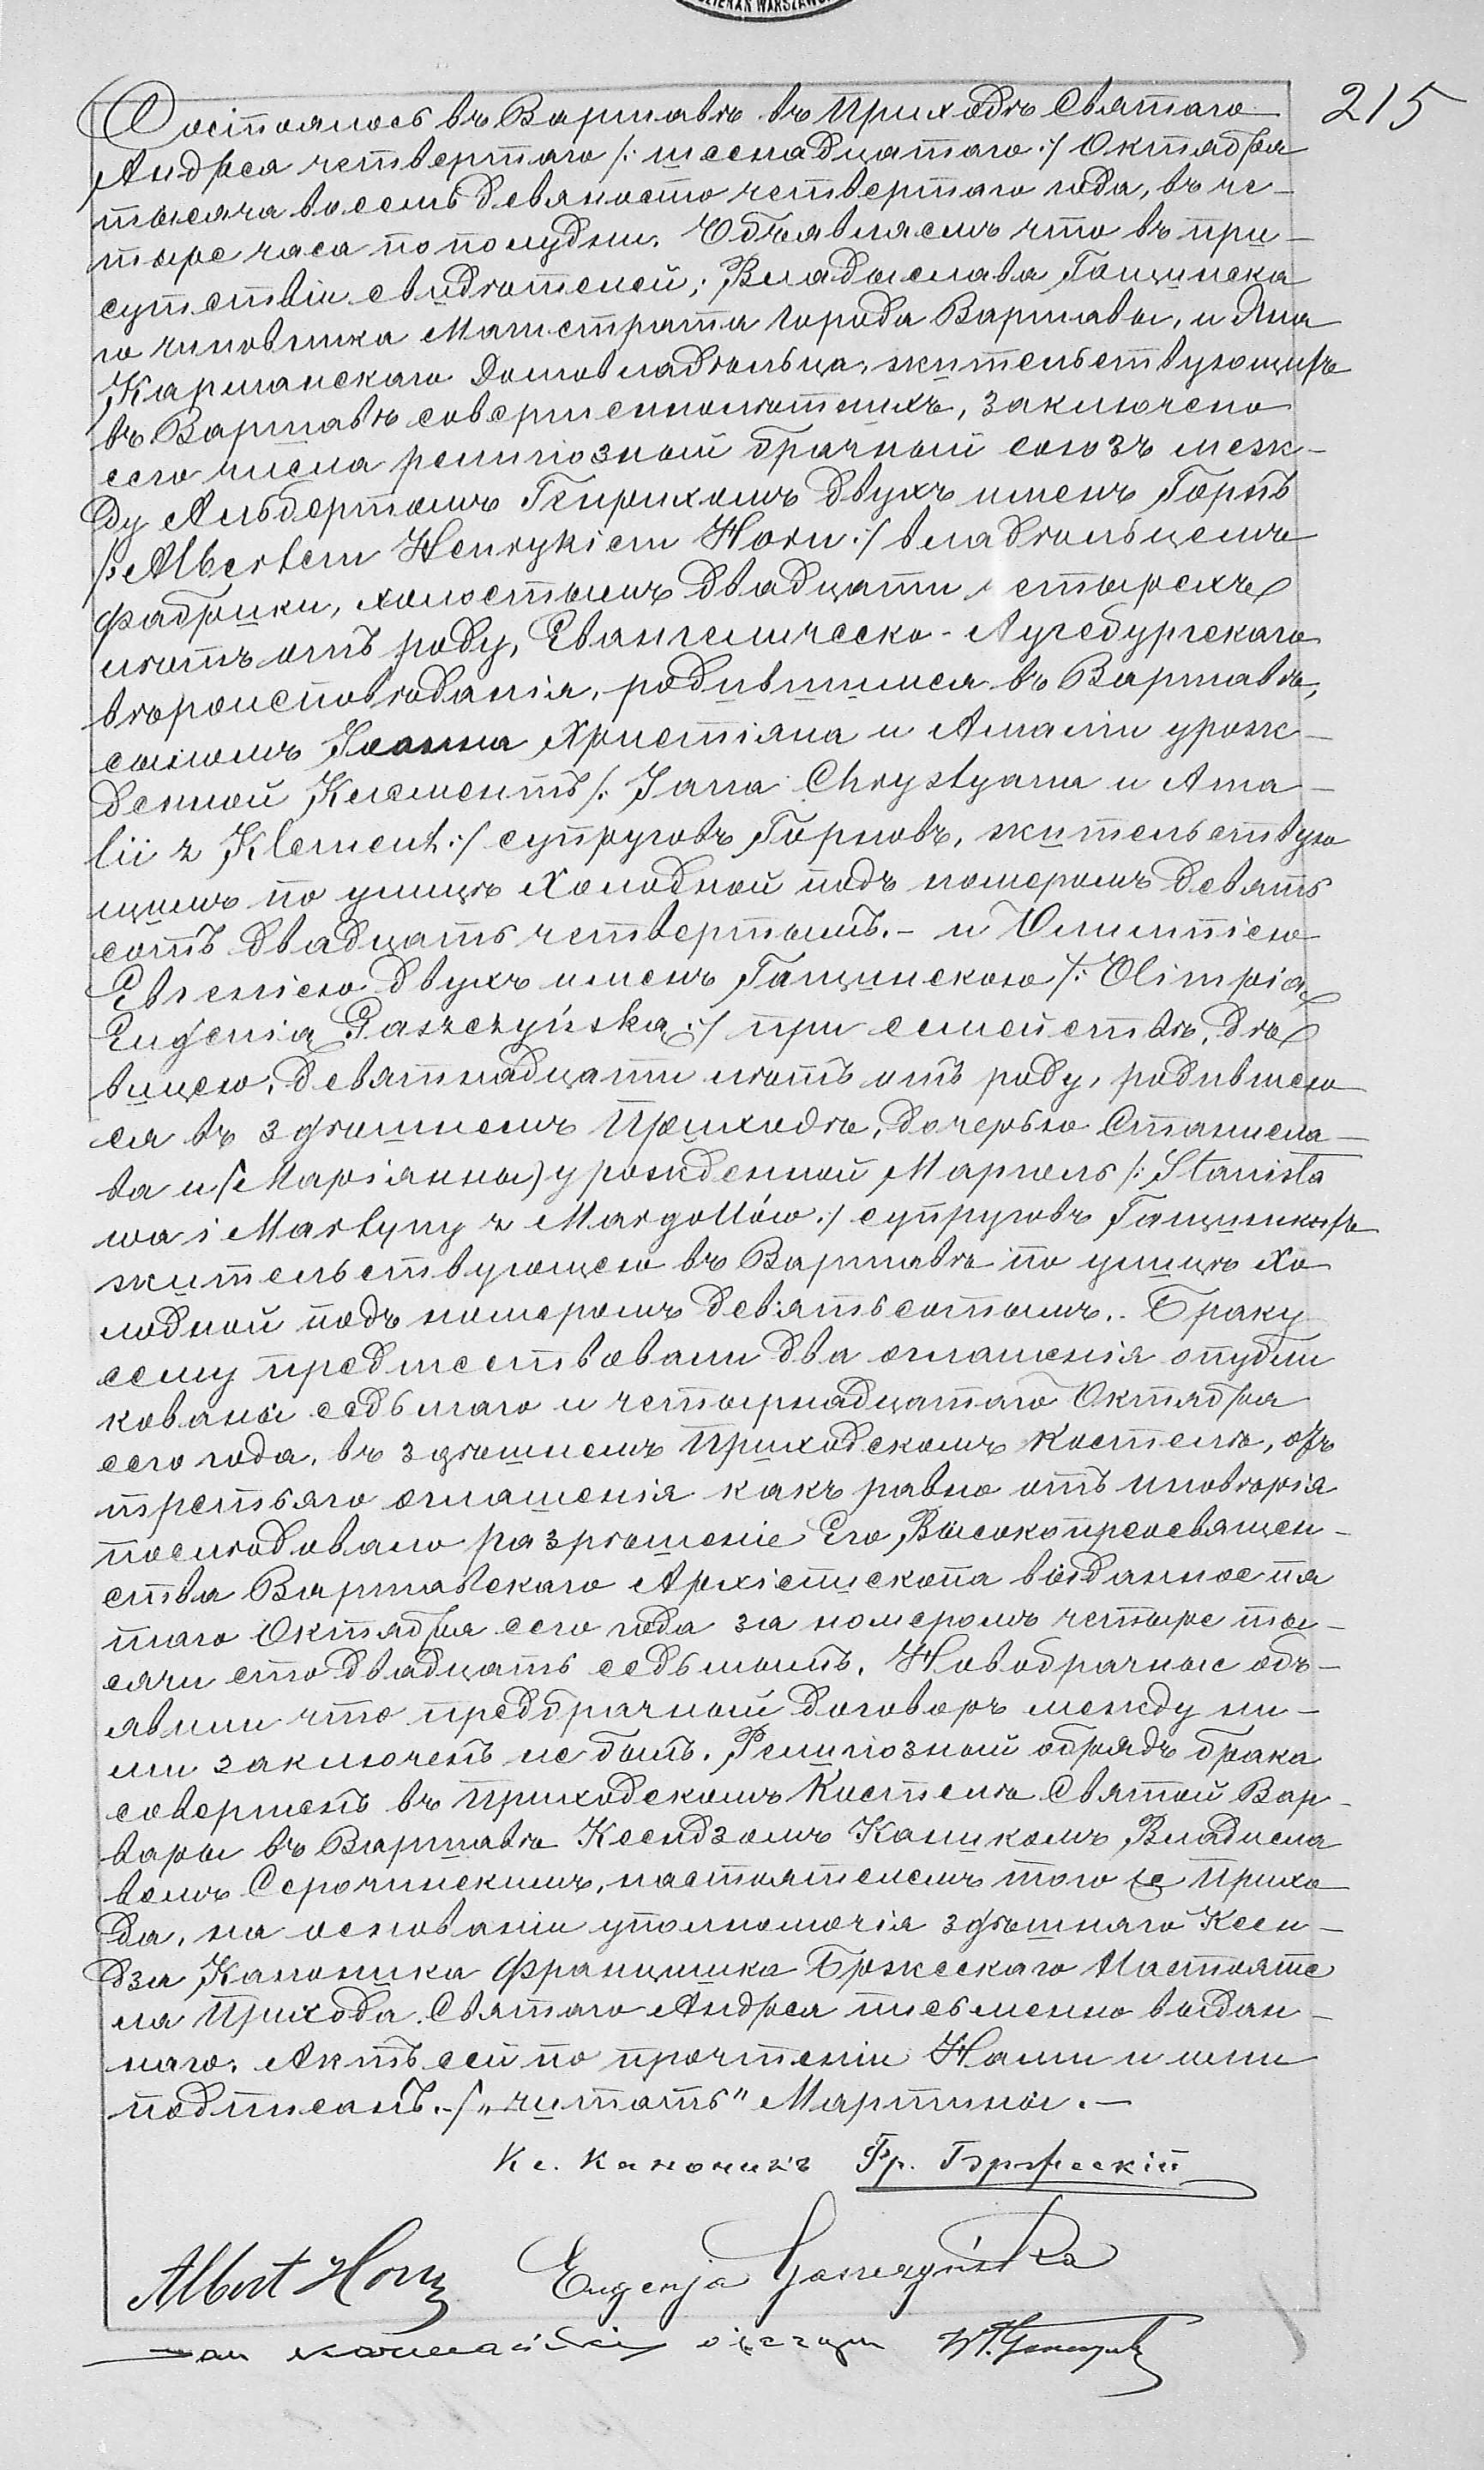 215
Состоялось въ Варшавѣ въ Приходѣ Святаго
Андрея четвертаго /: шеснадцатаго :/ Октября
тысяча восемь девяносто четвертаго года, въ че-
тыре часа по полудни. Объявляемъ что въ при-
сутствіи свидѣтелей; Владыслава Гащинска
го чиновника Магистрата города Варшавы, и Яна
Карманскаго домовладѣльца, жительствующихъ
въ Варшавѣ совершеннолѣтнихъ, заключено
сего числа религіозный брачный союзъ меж-
ду Альбертомъ Генрихомъ двухъ именъ Горнъ
/: Albertem Henrykiem Horn :/ владѣльцемъ
фабрики, холостымъ двадцати четырехъ
лѣтъ отъ роду, Евангелическо-Аугсбургскаго
вѣроисповѣданія, родившимся въ Варшавѣ,
сыномъ Іоанна Христіана и Амаліи урож-
денной Клементъ /: Jana Chrystyana и Ama-
lii z Klement :/ супруговъ Горновъ, жительствую
щимъ по улицѣ Холодной подъ номеромъ девять
сотъ двадцать четвертымъ. - и Олимпіею
Евгеніею двухъ именъ Гащинскою /: Olimpią
Eugenią Gaszczyńską :/ при семействѣ, дѣ
вицею, девятнадцати лѣтъ отъ роду, родившею
ся въ здѣшнемъ Приходѣ, дочерью Станисла-
ва и /Маріанны) урожденной Марголь /: Stanisła
wa i Martyny z Margollów :/ супруговъ Гащинскихъ
жительствующею въ Варшавѣ по улицѣ Хо
лодной подъ номеромъ девятьсотомъ.. Браку
сему предшествовали два оглашенія опубли
кованы седьмаго и четырнадцатаго Октября
сего года, въ здѣшнемъ Приходскомъ Костелѣ, отъ
третьяго оглашенія какъ равно отъ иновѣрія
послѣдовало разрѣшеніе Его Высокопреосвящен-
ства Варшавскаго Архіепископа выданное пя
таго Октября сего года за номеромъ четыре ты-
сячи сто двадцать седьмымъ. Новобрачные объ-
явили что предбрачный договоръ между ни-
ми заключенъ не былъ. Религіозный обрядъ брака
совершенъ въ Приходскомъ Костелѣ Святой Вар-
вары въ Варшавѣ Ксендзомъ Каникомъ Владисла
вомъ Серочинскимъ, настоятелемъ того же Прихо
да, на основаніи уполномочія здѣшняго Ксен-
дза Каноника Францишка Бржескаго Настояте
ля Прихода Святаго Андрея письменно выдан-
наго. Актъ сей по прочтеніи Нами и ими
подписанъ. -/ „читать" Мартины. -
Кс. Каноникъ Фр. Бржескій
Albert Horn Eugenja Gaszczyńska